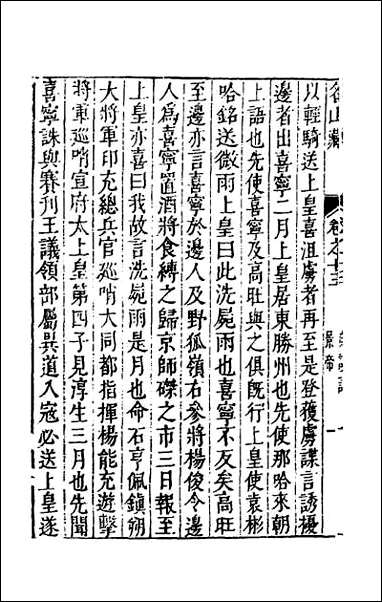 名山藏 卷之十三 景帝 一
以輕騎送上皇喜沮虜者再至是登獲虜諜言誘擾
邊者出喜寧二月上皇居東勝州也先使那哈來朝
上語也先使喜寧及高旺與之俱旣行上皇使袁彬
哈銘送微雨上皇曰此洗屍雨也喜寧不反矣高旺
至邊亦言喜寧於邊人及野狐嶺右參將楊俊令邊
人爲喜寧置酒將食縛之歸京師磔之市三日報至
上皇亦喜曰我故言洗屍雨是月也命石亨佩鎮朔
大將軍印充總兵官廵哨大同都指揮楊能充遊擊
將軍廵哨宣府太上皇第四子見淳生三月也先聞
喜寧誅與賽刋王議領部屬異道入冦必送上皇遂